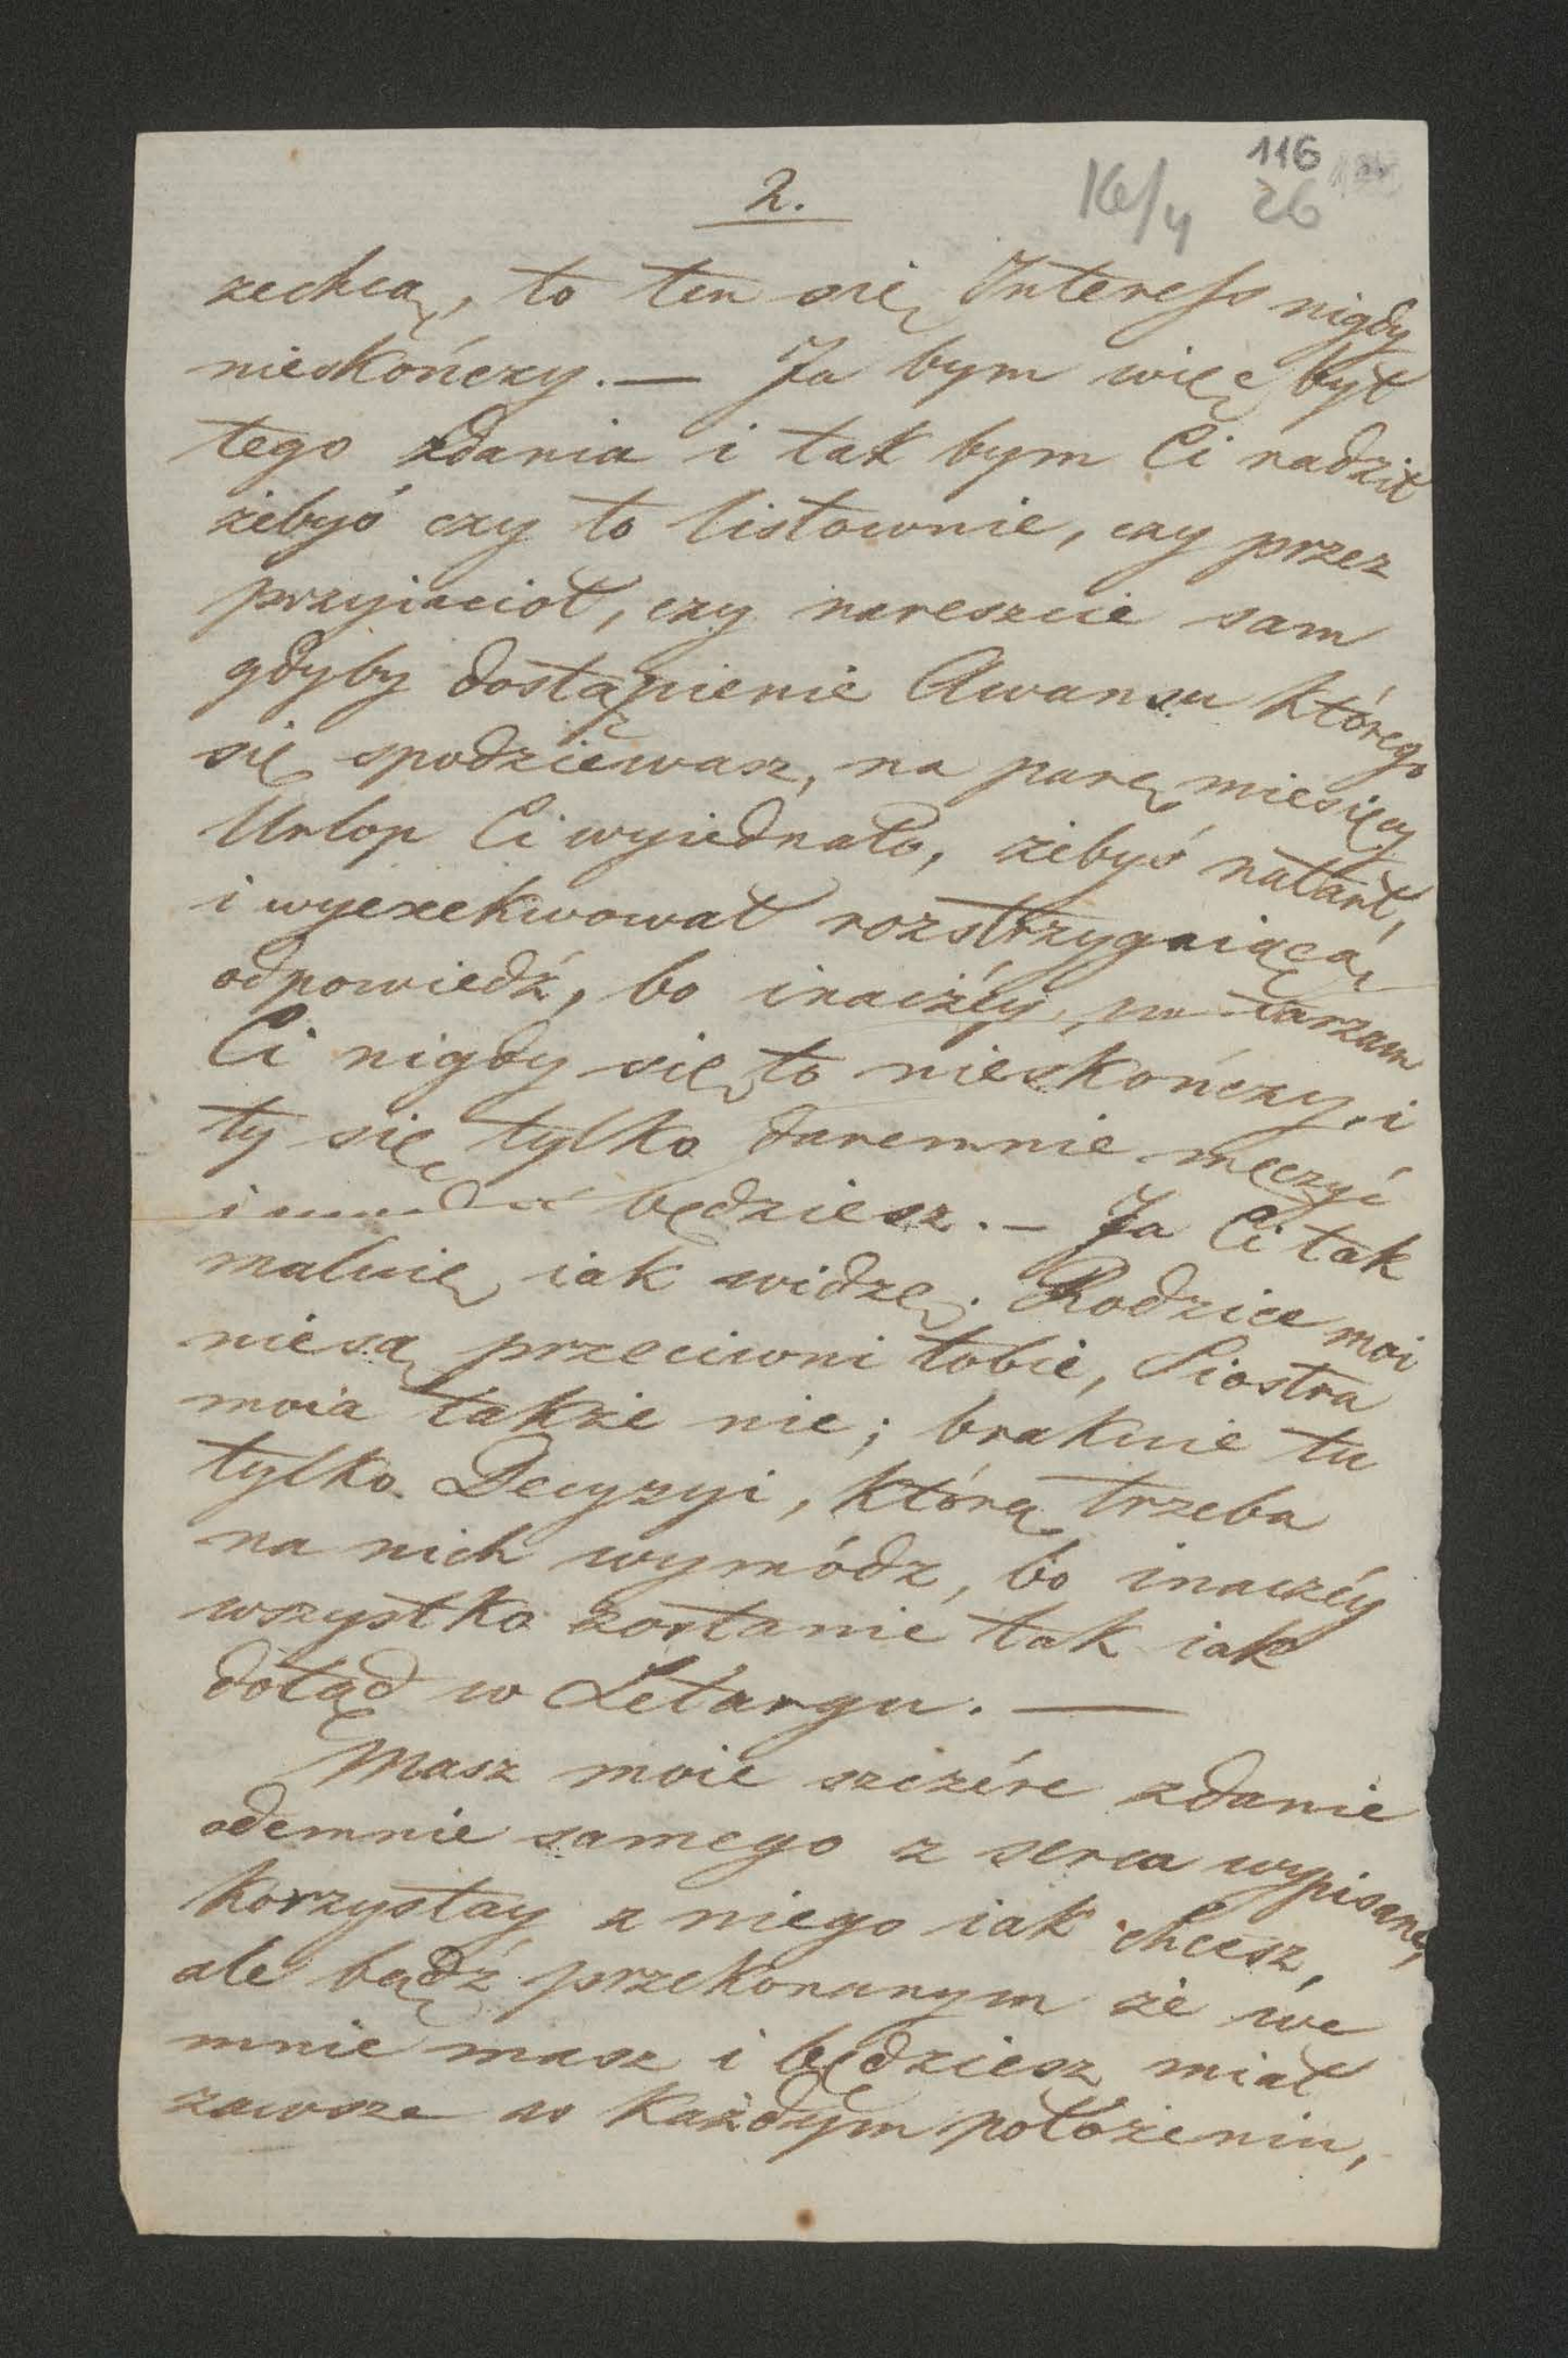 116
2.
26
zechcą, to ten się Interess nigdy
nieskończy. — Ja bym więc był
tego zdania i tak bym Ci radził
żebyś czy to listownie, czy przez
przyiaciół, czy nareszcie sam
gdyby dostąpienie Awansu którego
się spodziewasz, na parę miesięcy
Urlop Ci wyiednało, żebyś natarł,
i wyexekwował rozstrzygaiącą
odpowiedź, bo inaczéy,
Ci nigdy się to nieskończy, i
ty się tylko daremnie męczyć
i będziesz. — Ja Ci tak
maluię iak widzę. Rodzice moi
niesą przeciwni tobie, Siostra
moia także nie; brakuie tu
tylko Decyzyi, którą trzeba
na nich wymódz, bo inaczéy
wszystko zostanie tak iak
dotąd w Letargu. —
Masz moie szczére zdanie
odemnie samego z serca wypisane,
korzystay z niego iak chcesz,
ale bądź przekonanym że we
mnie masz i będziesz miał
zawsze w każdym położeniu,